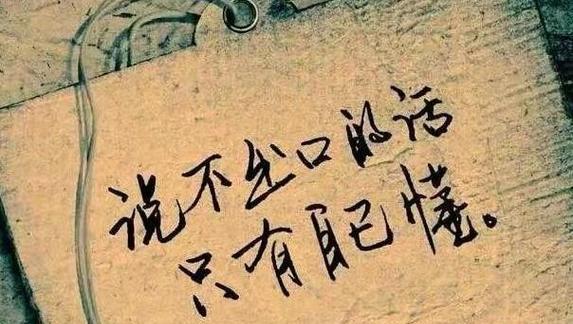 说不出口的话
只有自己懂。